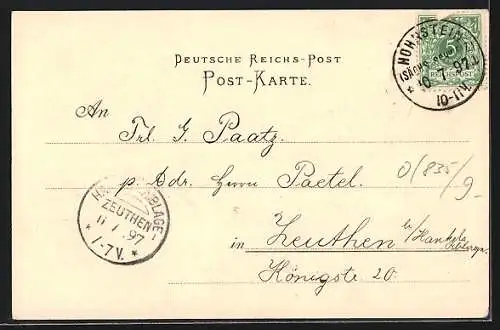 DEUTSCHE REICHS-POST
POST-KARTE.
HOHNSTEIN
10 7 97
10-11V.
5
REICHSPOST
An
Frl. G. Paatz.
p. Adr. Herrn Paetel.
0/835/9-
in Zeuthen b/Hankels
Ablage.
Königstr 20.
ABLAGE-
ZEUTHEN
11 7 97
* 1-7V. *